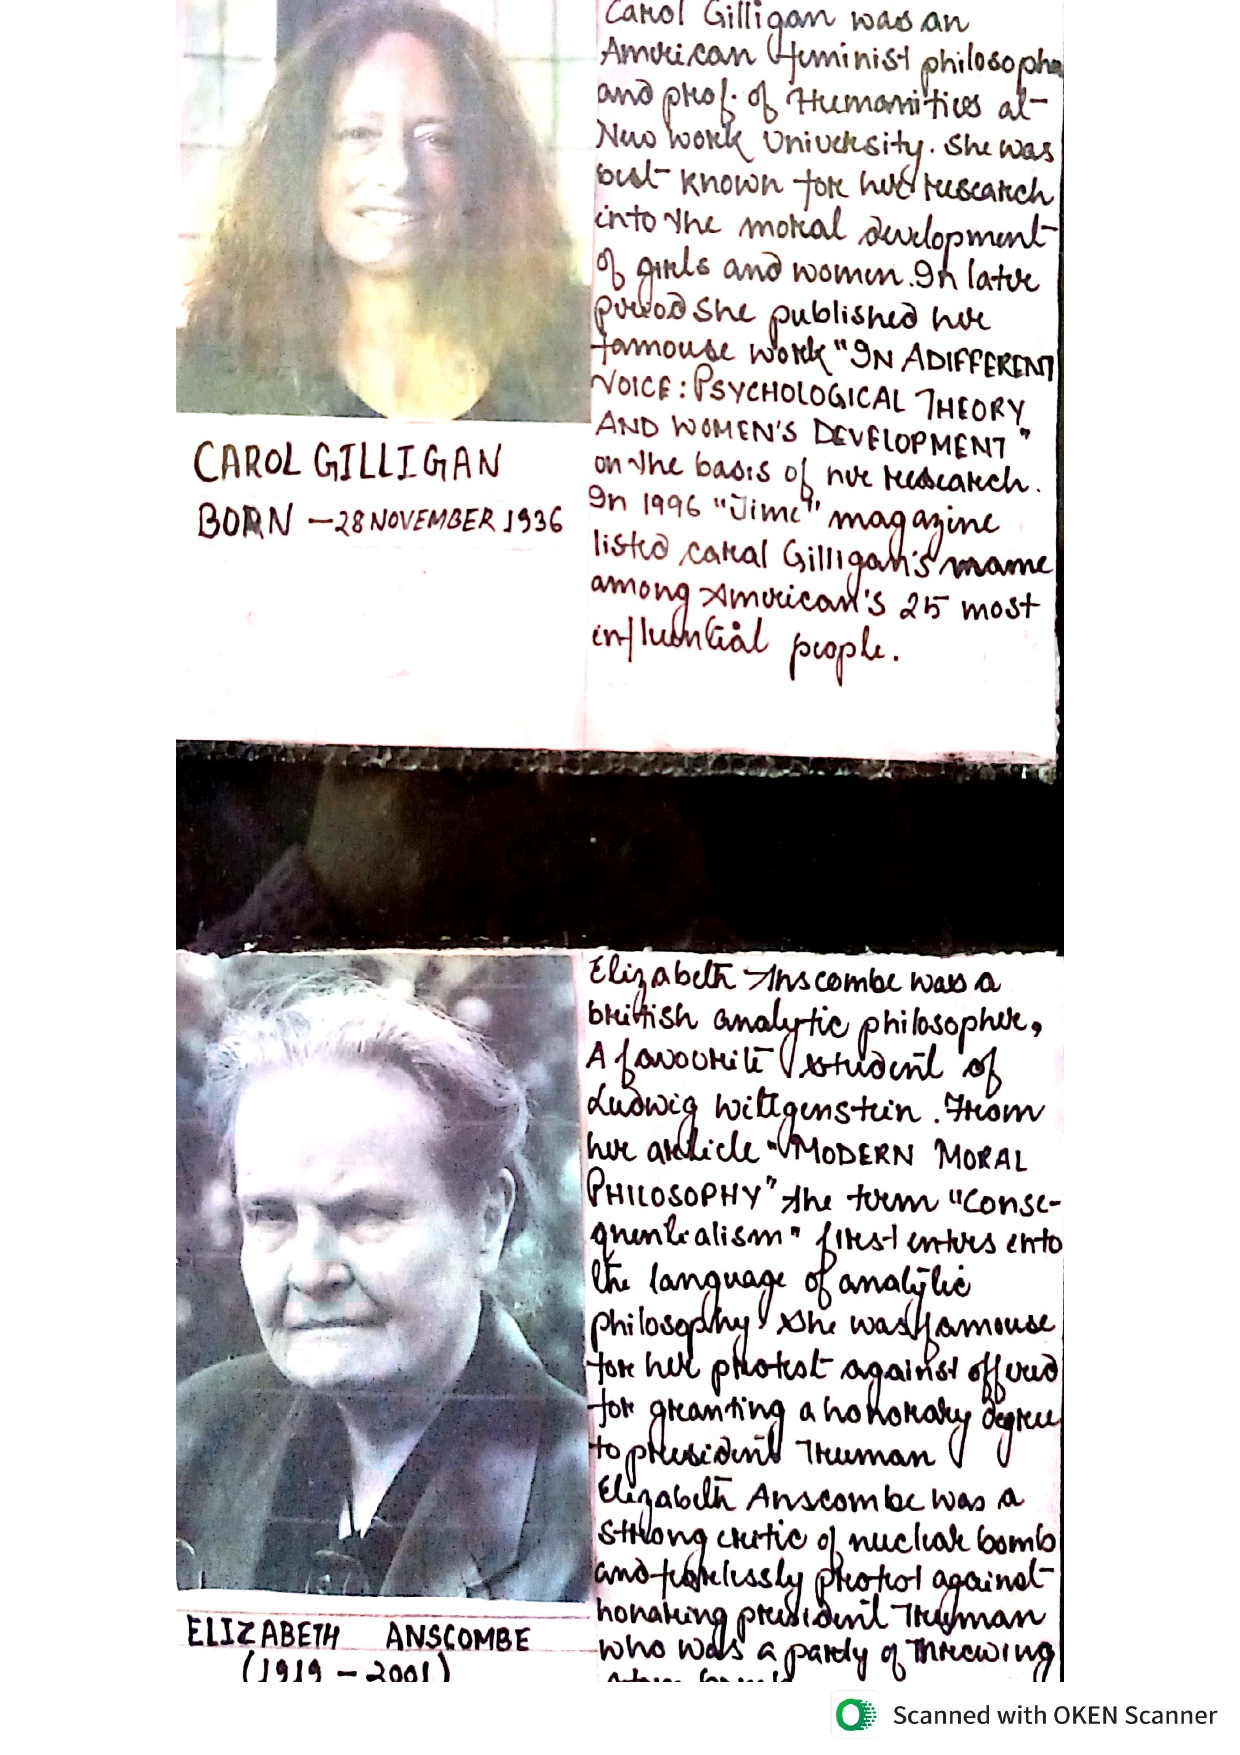 Carol Gilligan was an
American feminist philosophe
and prof. of Humanities at
New work University. She was
best known for her research
into the moral development
of girls and women. In later
period She published her
famouse work "IN ADIFFERENT
VOICE: PSYCHOLOGICAL THEORY
AND WOMEN'S DEVELOPMENT"
on the basis of her research.
In 1996 "Time" magazine
listed caral Gilligan's name
among American's 25 most
influential people.
CAROL GILLIGAN
BORN - 28 NOVEMBER 1936
Elizabeth Anscombe was a
british analytic philosopher,
A favourite student of
Ludwig Wittgenstein. From
her article "MODERN MORAL
PHILOSOPHY" the term "Conse-
quentialism" first enters into
the language of analytic
philosophy. She was famouse
for her protest against offered
for granting a honorary degree
to president Truman
Elizabeth Anscombe was a
strong critic of nuclear bomb
and protest against
honaring president Truman
who was a party of threwing
ELIZABETH ANSCOMBE
(1919 - 2001)
Scanned with OKEN Scanner